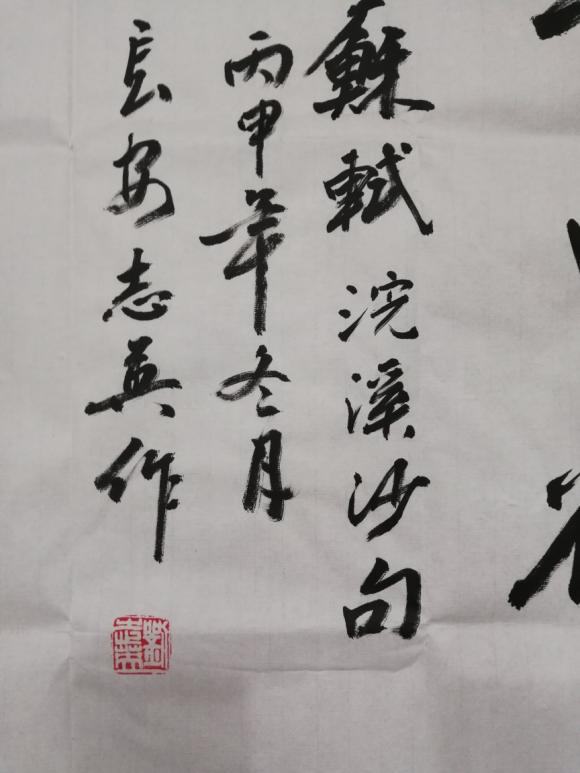 蘇軾浣溪沙句
丙申年冬月
長安志英作